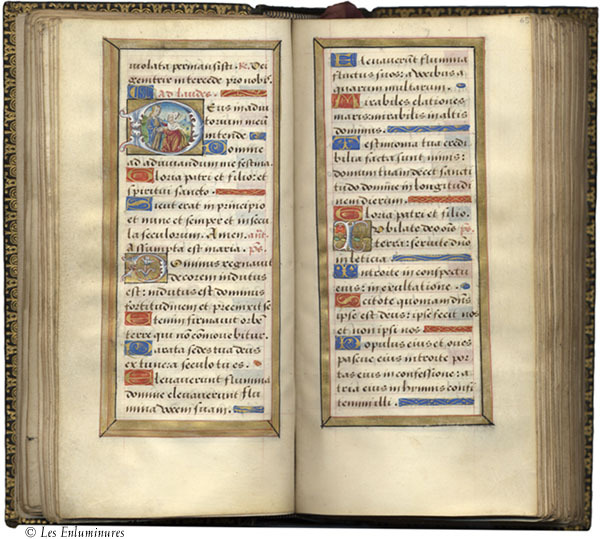 violata permansisti. R. Dei
genitrix intercede pro nobis.
Ad laudes.
Deus in adiu
torium meu
intende
Domine
ad adiuvandum me festina
Gloria patri et filio: et
spiritui sancto.
Sicut erat in principio
et nunc et semper et in secu
la seculorum. Amen. añ.
Assumpta est maria. ps.
Dominus regnavit
decorem indutus
est: indutus est dominus
fortitudinem et precinxit se
Etenim firmavit orbē
terre qui non cōmovebitur.
Parata sedes tua deus
ex tunc a seculo tu es.
Elevaverunt flumina
domine elevaverunt flu
mina vocem suam.
65
Elevaverunt flumina
fluctus suos: a vocibus a
quarum multarum.
Mirabiles elationes
maris: mirabilis in altis
dominus.
Testimonia tua credi
bilia facta sunt nimis:
domum tuam decet sancti
tudo domine in longitudi
nem dierum.
Gloria patri et filio.
Iubilate deo oīs ps.
terra: servite dño
in leticia
Introite in conspectu
eius: in exultatione.
Scitote quoniam dñs
ipse est deus: ipse fecit nos
et non ipsi nos
Populus eius et oves
pascue eius introite por
tas eius in confessione: a
tria eius in hymnis confi
temini illi.
© Les Enluminures